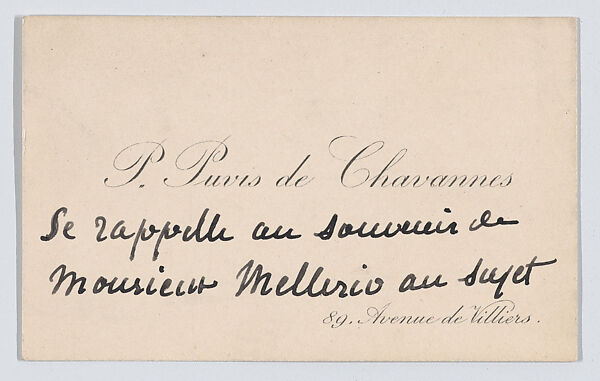 P. Puvis de Chavannes
Se rappelle au souvenir de
Monsieur Mellerio au sujet
89. Avenue de Villiers.